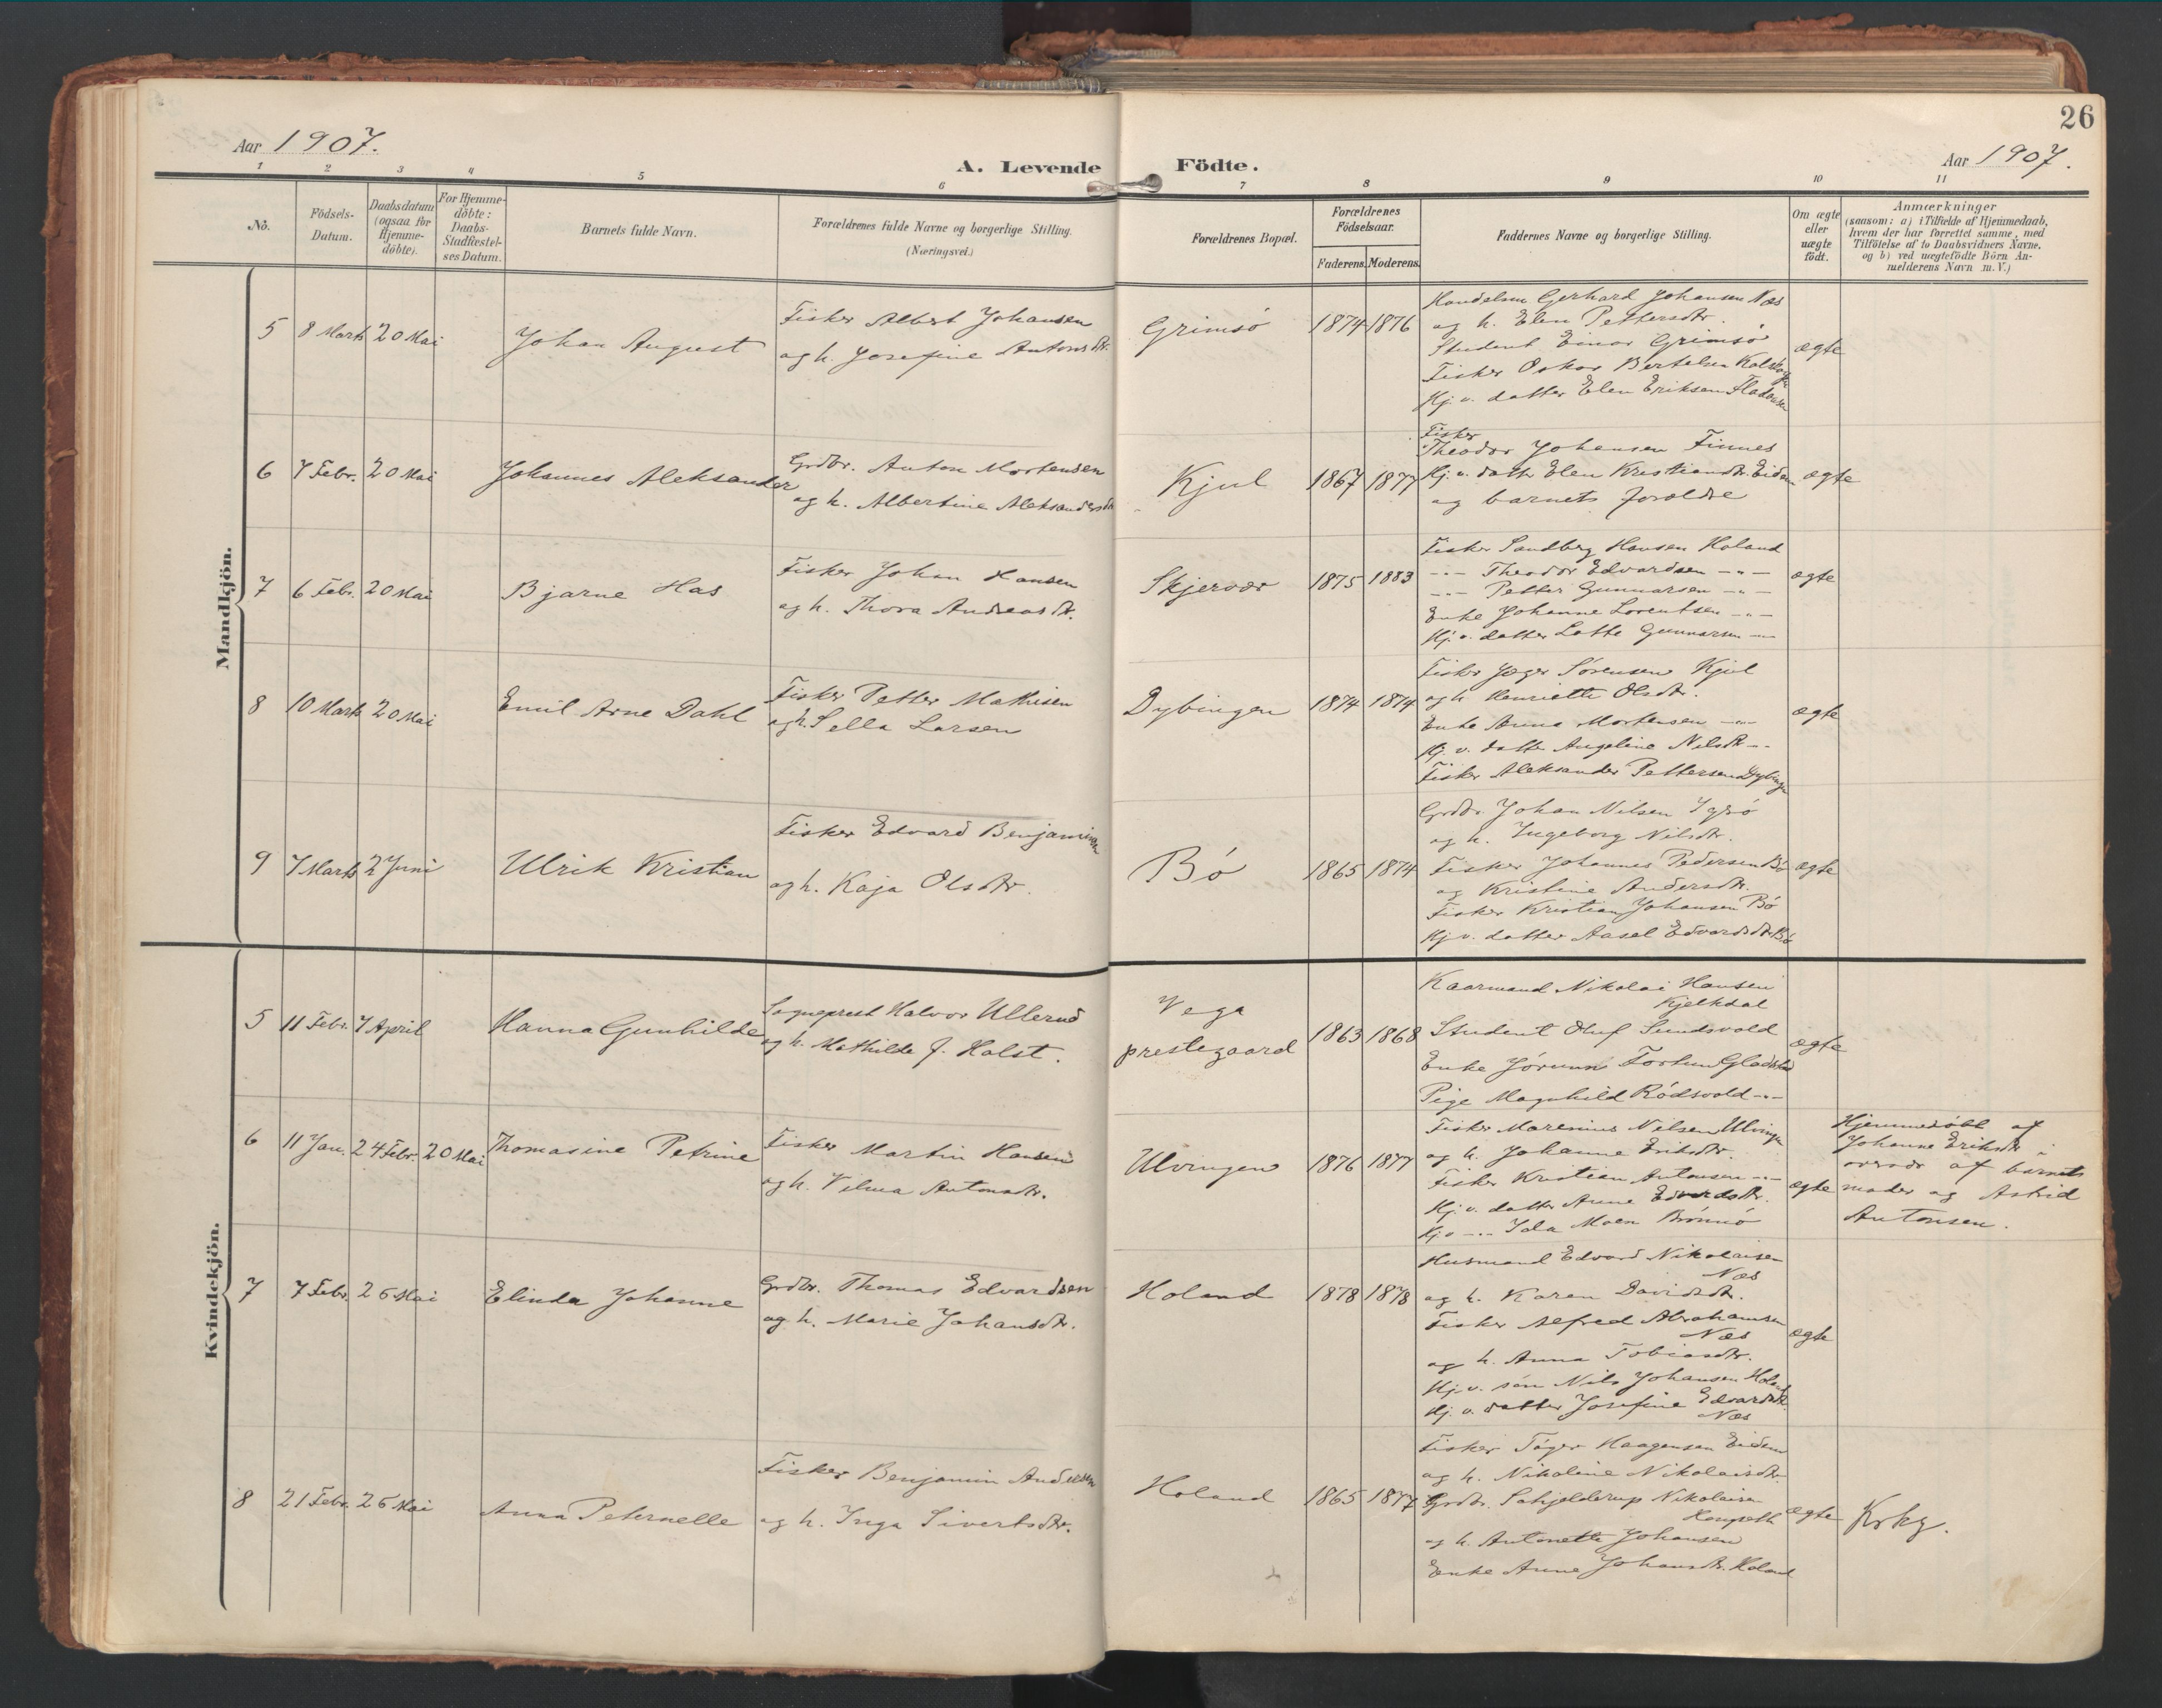 26
Aar 1907.
A. Levende Födte.
Aar 1907.
1 2 3 4 5 6 7 8 9 10 11
No.
Födsels-
Datum.
Daabsdatum
(ogsaa for
Hjemme-
döbte).
For Hjemme-
döbte:
Daabs-
Stadfæstel-
ses Datum.
Barnets fulde Navn.
Forældrenes fulde Navne og borgerlige Stilling.
(Næringsvei.)
Forældrenes Bopæl.
Forældrenes
Födselsaar.
Faderens. Moderens.
Faddernes Navne og borgerlige Stilling.
Om ægte
eller
uægte
födt.
Anmærkninger
(saasom: a) i Tilfælde af Hjemmedaab,
hvem der har forrettet samme, med
Tilföielse af to Daabsvidners Navne,
og b) ved uægtefödte Börn An-
melderens Navn m. V.)
Mandkjön.
5 8 Marts 20 Mai
Johan August
Fisker Albert Johansen
og h. Josefine Antonsdtr.
Grimsö 1874 1876
Handelsm. Gerhard Johansen Næs
og h. Elen Pettersdtr.
Student Einar Grimsö
Fisker Oskar Bertelsen
Hj. v. datter Elen Eriksen
ægte
6 7 Febr. 20 Mai
Johannes Aleksander
Grdbr. Anton Mortensen
og h. Albertine Aleksandersdtr
Kjul 1867 1877
Fisker
Theodor Johansen Finnes
Hj. v. datter Elen Kristiansdtr. Eidem
og barnets forældre
ægte
7 6 Febr. 20 Mai
Bjarne Has
Fisker Johan Hansen
og h. Thora Andreasdtr.
Skjervær 1875 1883
Fisker Sandberg Hansen Holand
-"- Theodor Edvardsen -"-
-"- Petter Gunnarsen -"-
Enke Johanne Lorentsen -"-
Hj. v. datter Lotte Gunnarsen -"-
ægte
8 10 Marts 20 Mai
Emil Arne Dahl
Fisker Petter Mathisen
og h. Sella Larsen
Dybingen 1874 1874
Fisker Jæger Sörensen Kjul
og h Henriette Olsdtr.
Enke Anna Mortensen -"-
Hj. v. datter Angeline Nilsdtr -"-
Fisker Aleksander Pettersen Dybingen
ægte
9 7 Marts 2 Juni
Ulrik Kristian
Fisker Edvard Benjaminsen
og h. Kaja Olsdtr.
Bö 1865 1874
Grdbr. Johan Nilsen
og h. Ingeborg Nilsdtr.
Fisker Johannes Pedersen Bö
og Kristine Andersdtr.
Fisker Kristian Johansen Bö
Hj. v. datter Aasel Edvardsdtr. Bö
ægte
Kvindekjön.
5 11 Febr. 7 April
Hanna Gunhilde
Sogneprest Halvor Ullerud
og h. Mathilde J. Holst.
Vega
prestegaard
1863 1868
Kaarmand Nikolai Hansen
Kjelkdal
Student Oluf Sundsvold
Enke Jörunn Fortun Gladstad
Pige Magnhild Rödsvold -"-
ægte
6 11 Jan. 24 Febr. 20 Mai
Thomasine Petrine
Fisker Martin Hansen
og h. Velma Antonsdtr.
Ulvingen 1876 1877
Fisker Marenius Nilsen Ulvingen
og h. Johanne Eriksdtr.
Fisker Kristian Antonsen -"-
Hj. v. datter Anne Edvardsdtr.
Hj. v -"- Ida Moen Brönnö
ægte
Hjemmedöbt af
Johanne Eriksdtr i
overvær af barnets
moder og Astrid
Antonsen.
7 7 Febr. 26 Mai
Elinda Johanne
Grdbr. Thomas Edvardsen
og h. Marie Johansdtr.
Holand 1878 1878
Husmand Edvard Nikolaisen
Næs
og h. Karen Davidsdtr.
Fisker Alfred Abrahamsen
Næs
og h. Anna Tobiasdtr.
Hj. v. sön Nils Johansen Holand
Hj. v. datter Josefine Edvardsdtr.
Næs
ægte
8 21 Febr. 26 Mai
Anna Peternelle
Fisker Benjamin Andersen
og h. Inga Sivertsdtr.
Holand 1865 1877
Fisker Töger Haagensen Eidem
og h. Nikoline Nikolaisdtr
Grdbr. Schjelderup Nikolaisen
og h. Antonette Johansen
Enke Anne Johansdtr. Holand
ægte